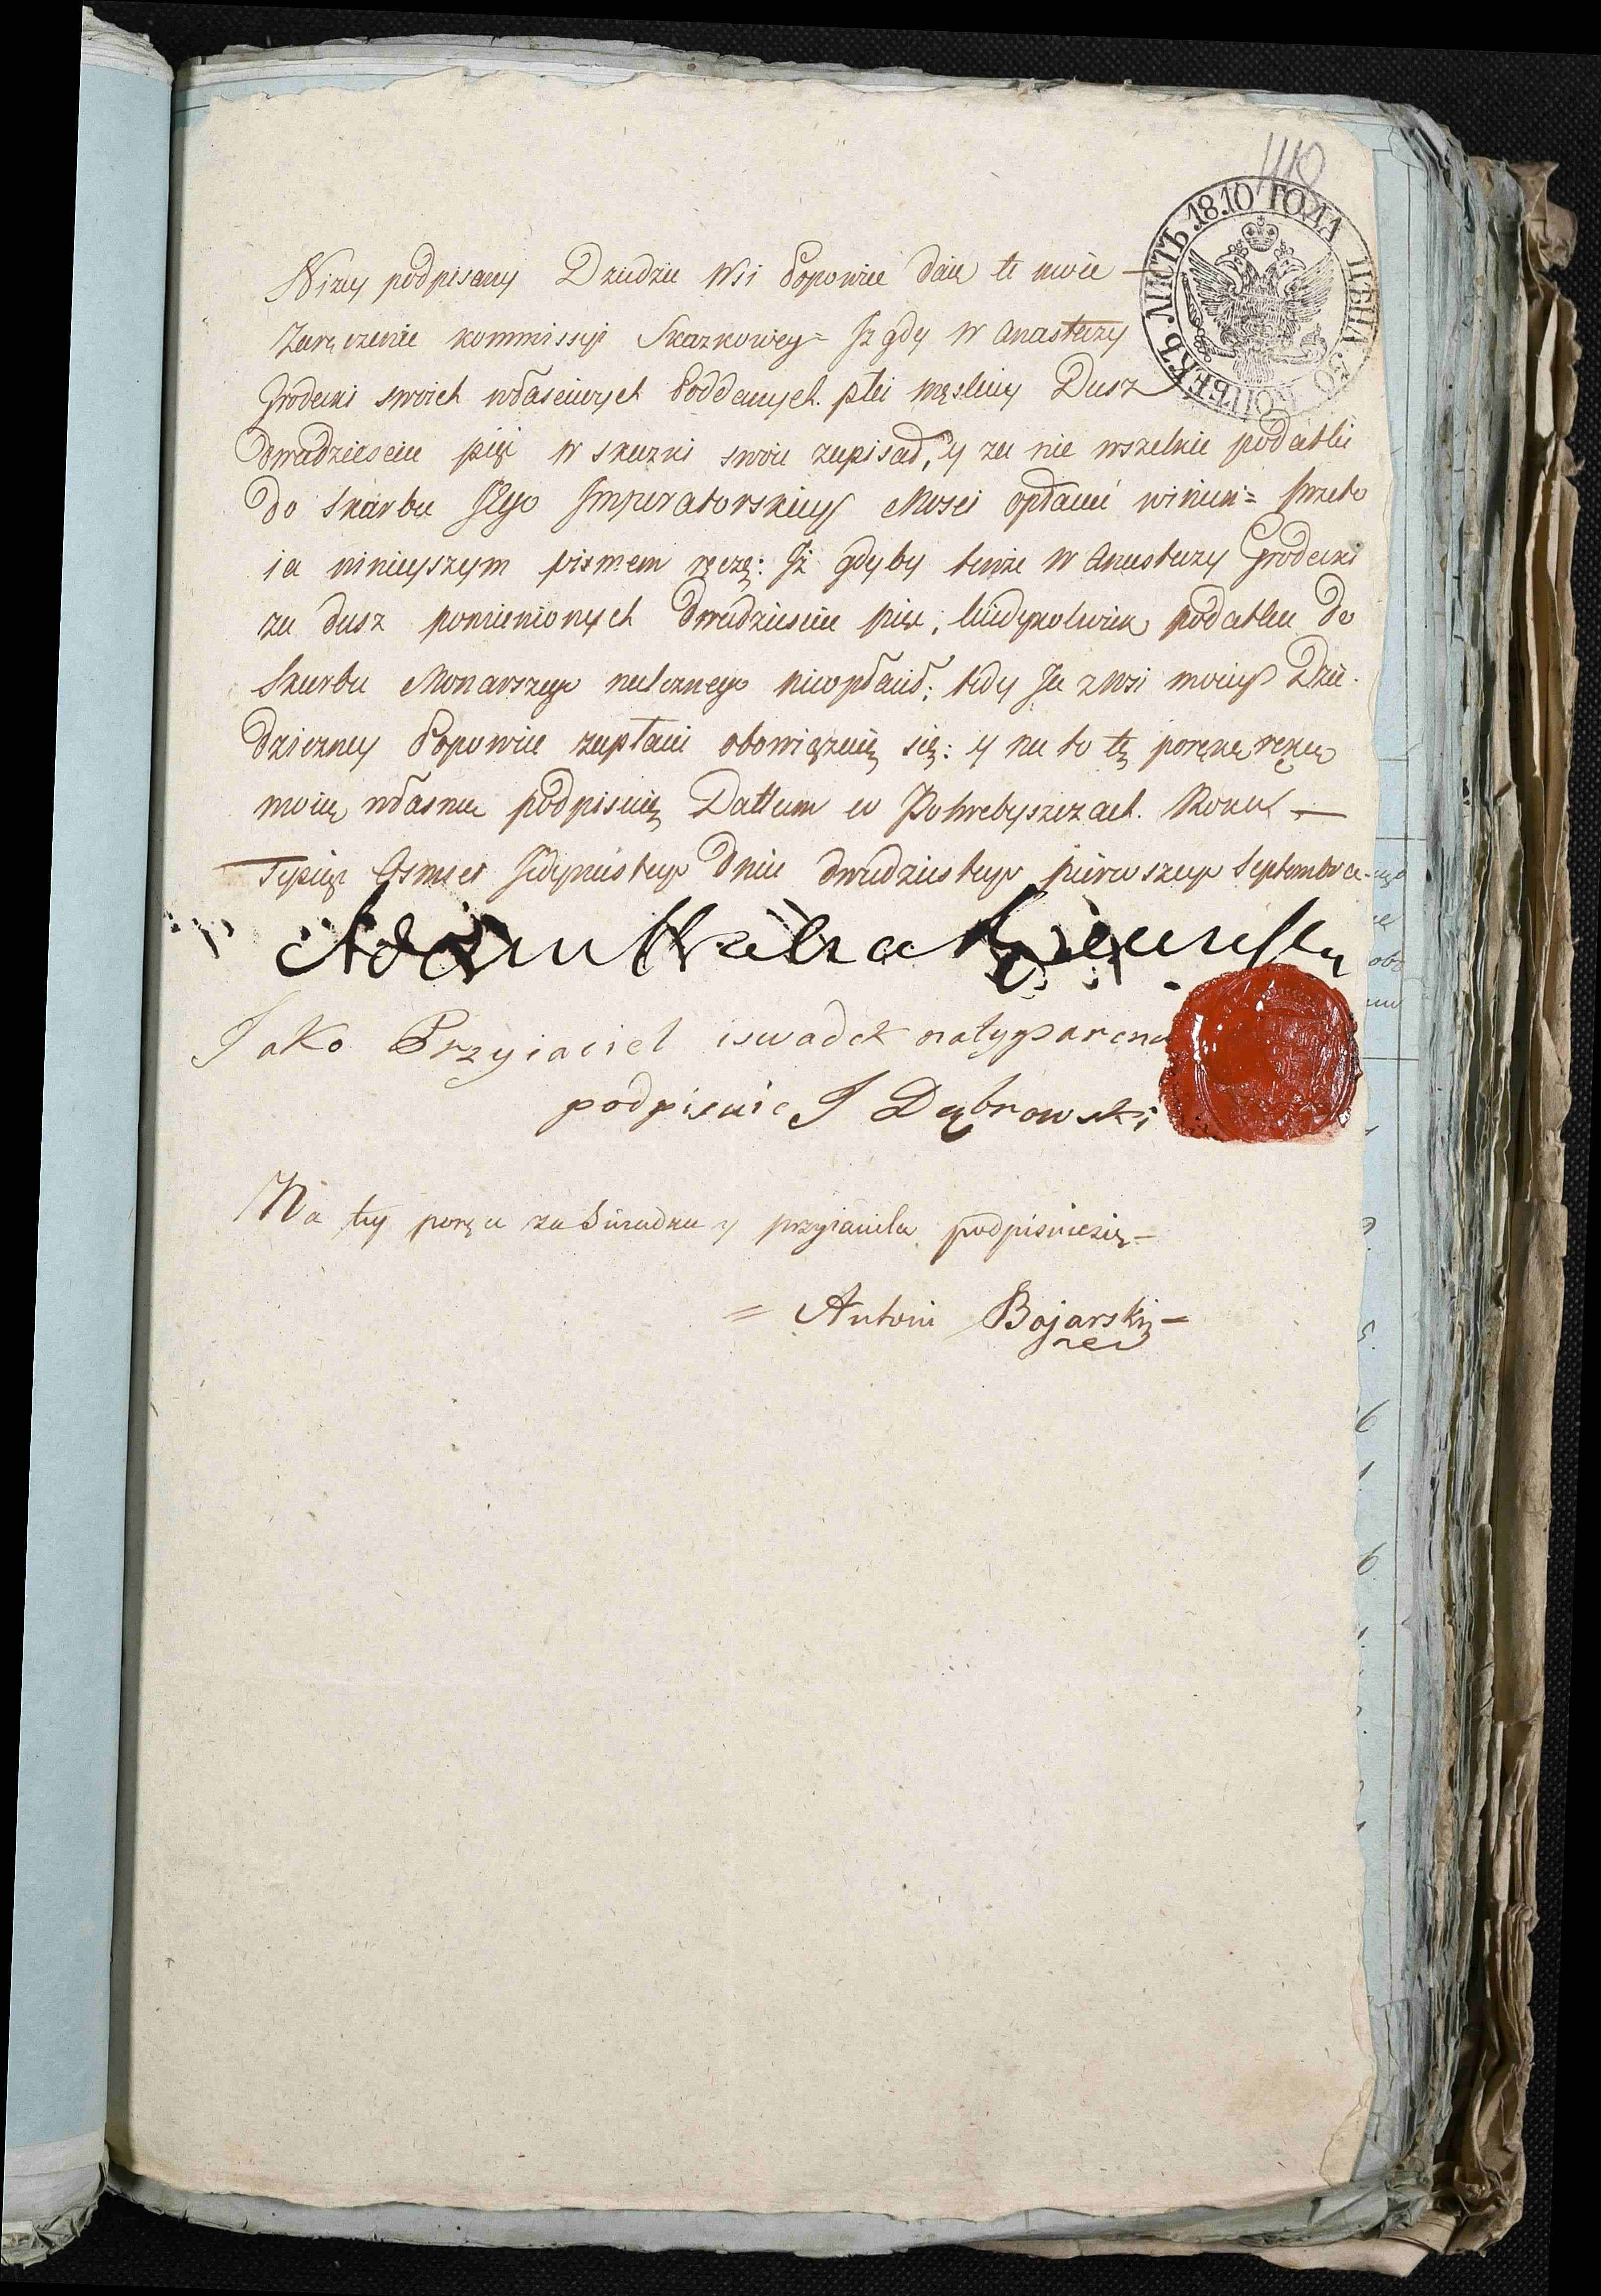 410
ЛИСТЪ 1810 ГОДА ЦѢНА 50 КОПѢЕКЪ
Niżey podpisany Dziedzic Wsi Popowiec daię te moie —
Zaręczenie kommissyi Skazkowey = Jż gdy W Anastazy
Grodecki swoich właściwych Poddanych płci męskiey Dusz
dwadziescia pięć w skazki swoie zapisał, y za nie wszelkie podatki
do Skarbu Jego Jmperatorskiey Mosci opłacić winien = Przeto
ia ninieyszym pismem ręczę: Jż gdyby tenże W Anastazy Grodecki
za dusz pomienionych dwadziescia pięć, kiedykolwiek podatku do
Skarbu Monarszego należnego nieopłacił: tedy Ja z Wsi moiey Dzie-
dziczney Popowiec zapłacić obowięzuię się: y na to tę porękę ręką
moią własną podpisuię Dattum w Pohrebyszczach. Roku —
Tysiąc Osmset Jedynastego dnia dwudziestego pierwszego Septembra
Adam
Jako Przyiaciel iswadek natyy parence
podpisuie J Dąbrowski
Na tey poręce za Swiadka y przyiaciela podpisuiesię —
= Antoni Bojarski —